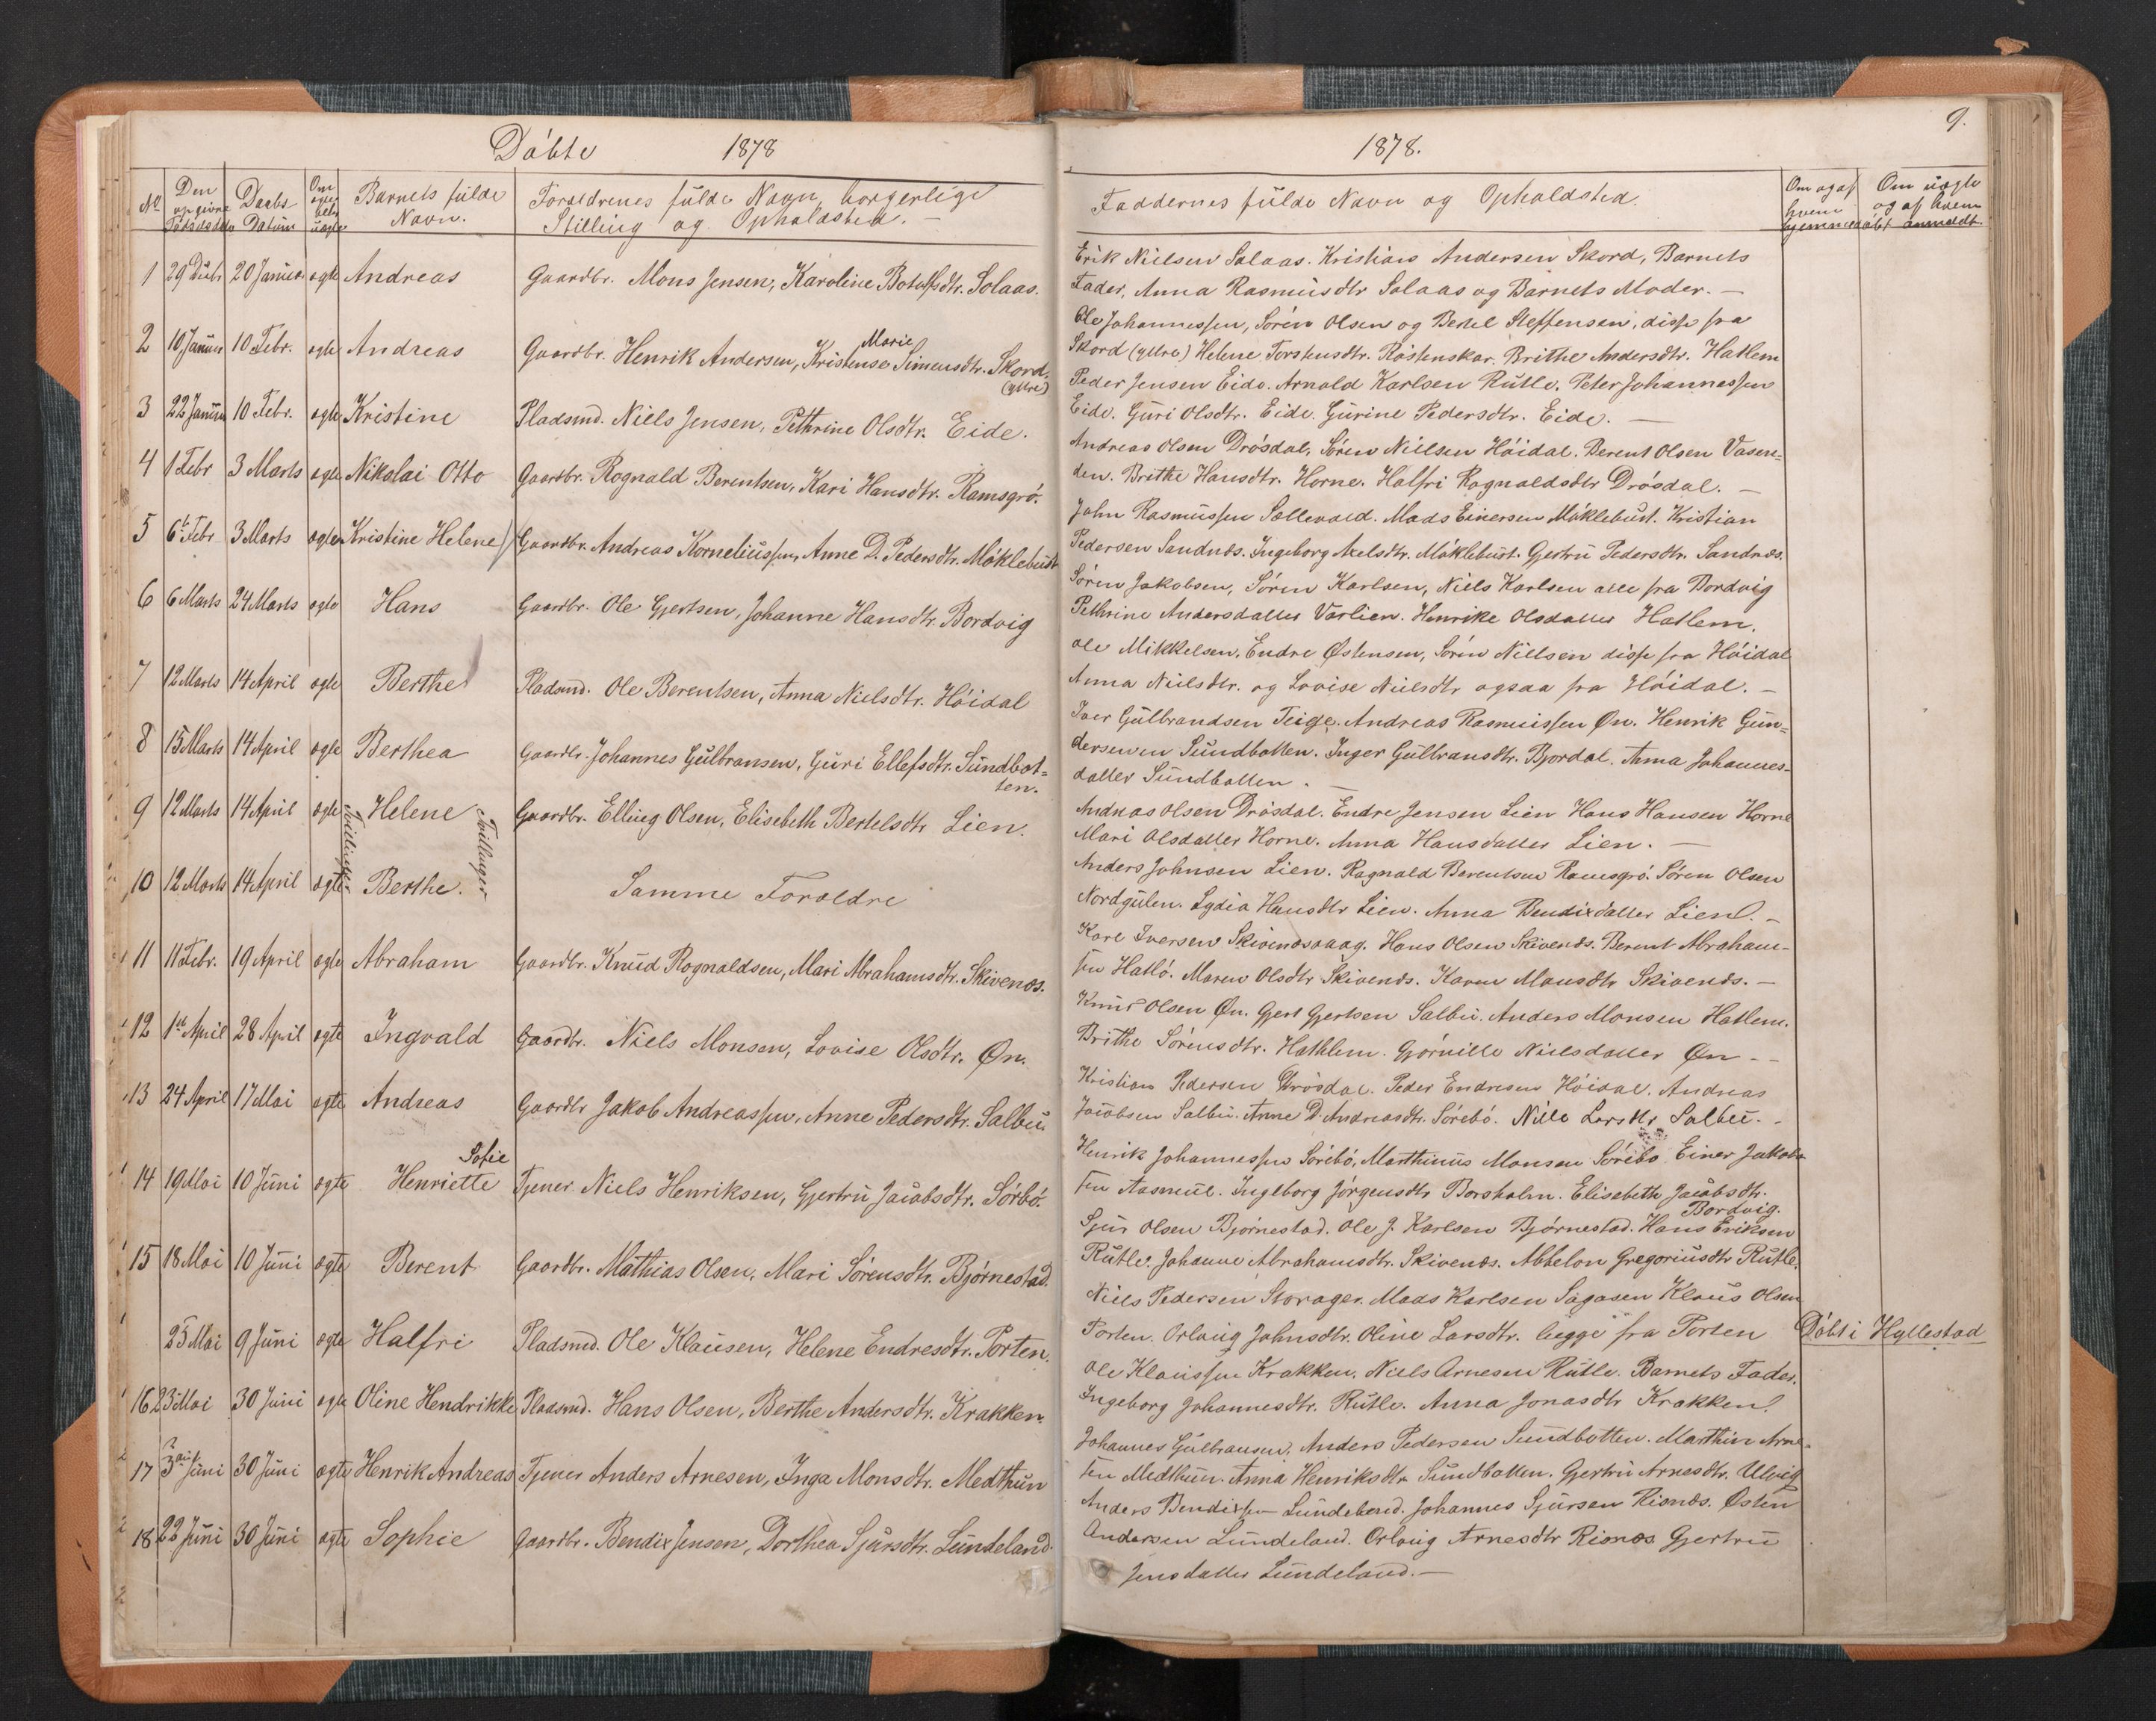 Döbte 1878
No
Den opgivne Fødselsdato
Daabs Datum
Om ægte eller uægte
Barnets fulde Navn.
Forældrenes fulde Navn, borgerlige Stilling og Opholdsted.
1 29 Decbr 20 Januar ægte Andreas Gaardbr. Mons Jensen, Karoline Botolfsdtr. Solaas.
2 10 Januar 10 Febr. ægte Andreas Gaardbr. Henrik Andersen, Kristense Marie Simensdtr. Skord. (yttre)
3 22 Januar 10 Febr. ægte Kristine Pladsmd. Niels Jensen, Pethrine Olsdtr. Eide.
4 1 Febr 3 Marts ægte Nikolai Otto Gaardbr. Rognald Berentsen, Kari Hansdtr. Ramsgrö.
5 6te Febr 3 Marts ægte Kristine Helene Gaardbr. Andreas Korneliussen, Anne D. Pedersdtr. Möklebust
6 6 Marts 24 Marts ægte Hans Gaardbr. Ole Gjertsen, Johanne Hansdtr. Bordvig
7 12 Marts 14 April ægte Berthe Pladsmd. Ole Berentsen, Anna Nielsdtr. Höidal
8 15 Marts 14 April ægte Berthea Gaardbr. Johannes Gulbransen, Guri Ellefsdtr. Sundbotten.
9 12 Marts 14 April ægte Tvillinger Helene Tvillinger Gaardbr. Elling Olsen, Elisebeth Bertelsdtr Lien.
10 12 Marts 14 April ægte Berthe. Samme Foreldre
11 11 Febr. 19 April ægte Abraham Gaardbr. Knud Rognaldsen, Mari Abrahamsdtr. Skivenes.
12 1ste April 28 April ægte Ingvald Gaardbr. Niels Monsen, Lovise Olsdtr. Øn.
13 24 April 17 Mai ægte Andreas Gaardbr Jakob Andreassen, Anne Pedersdtr. Salbu.
14 19 Mai 10 Juni ægte Henriette Sofie Tjener Niels Henriksen, Gjertru Jacobsdtr. Sörbö.
15 18 Mai 10 Juni ægte Berent Gaardbr. Mathias Olsen, Mari Sörensdtr. Björnestad.
25 Mai 9 Juni ægte Halfri Pladsmd. Ole Klausen, Helene Endresdtr. Porten.
16 23 Mai 30 Juni ægte Oline Hendrikke Pladsmd. Hans Olsen, Berthe Andersdtr. Krakken.
17 3 Juni 30 Juni ægte Henrik Andreas Tjener Anders Arnesen, Inga Monsdtr. Medthun
18 22 Juni 30 Juni ægte Sophie Gaardbr. Bendix Jensen, Dorthea Sjursdtr. Lundeland.
1878.
9.
Faddernes fulde Navn og Opholdsted.
Om og af hvem hjemmedöbt
Om uægte og af hvem anmeldt.
Erik Nielsen Solaas. Kristian Andersen Skord, Barnets
Fader, Anna Rasmusdtr Solaas og Barnets Moder. —
Ole Johannessen, Sören Olsen og Bertel Steffensen, disse fra
Skord (yttre) Helene Torstensdtr. Röstenskar. Brithe Andersdtr. Hatlem
Peder Jensen Eide. Arnold Karlsen Rutle. Peter Johannessen
Eide. Guri Olsdtr. Eide. Gurine Pedersdtr. Eide. —
Andreas Olsen Drösdal, Sören Nielsen Höidal. Berent Olsen Vasen=
den. Brithe Hansdtr. Horne. Halfri Rognaldsdtr Drösdal. —
John Rasmussen Sollevold. Mads Einersen Möklebust. Kristian
Pedersen Sandnes. Ingeborg Axelsdtr. Möklebust. Gjertru Pedersdtr. Sandnæs.
Sören Jakobsen, Sören Karlsen, Niels Karlsen alle fra Bordvig
Pethrine Andersdatter Varlien. Henrike Olsdatter Hatlem.
Ole Mikkelsen. Endre Østensen, Sören Nillsen disse fra Höidal
Anna Nielsdtr. og Lovise Nielsdtr ogsaa fra Höidal. —
Iver Gulbrandsen Teige. Andreas Rasmussen Øn. Henrik Gun=
dersen Sundbotten. Inger Gulbransdtr. Bjordal. Anna Johannes=
datter Sundbotten. —
Andreas Olsen Drösdal. Endre Jensen Lien Hans Hansen Horne
Mari Olsdatter Horne. Anna Hansdatter Lien. —
Anders Johnsen Lien. Ragnald Berentsen Ramsgrö. Sören Olsen
Nordgulen. Lydia Hansdtr Lien. Anna Bendixdatter Lien. —
Kare Iversen Skivenesvaag. Hans Olsen Skivenes. Berent Abraham-
sen Hatlö. Maren Olsdtr Skivenes. Karen Monsdtr Skivenes. —
Knud Olsen Øn. Gjert Gjertsen Salbu. Anders Monsen Hatlem.
Brithe Sörensdtr. Hathlem. Gjörnille Nielsdatter Øn - -
Kristian Pedersen Drösdal. Peder Endresen Höidal. Andreas
Jacobsen Salbu. Anne D. Andreasdtr. Sörebö. Nille Larsdtr Salbu. -
Henrik Johannessen Söribö, Marthinus Monsen Söribö Einer Jakob-
sen Aasmul. Ingeborg Jörgensdtr Borsholm. Elisebeth Jacobsdtr.
Bordvig.
Sjur Olsen Björnestad. Ole J. Karlsen Björnestad. Hans Eriksen
Rutle. Johanne Abrahamsdtr. Skivenes. Abbelon Gregoriusdtr Rutle.
Niels Pedersen Storager. Mads Karlsen Sagosen Klaus Olsen
Porten. Orlaug Johnsdtr. Oline Larsdtr. begge fra Porten Döbt i Hyllestad
Ole Klaussen Krakken. Niels Arnesen Rutle. Barnets Fader.
Ingeborg Johannesdtr. Rutle. Anna Jonasdtr Krakken.
Johannes Gulbransen, Anders Pedersen Sundbotten. Marthin Arne-
sen Medthun. Anna Henriksdtr Sundbotten. Gjertru Arnesdtr. Ulvig
Anders Bendixsen Lundeland. Johannes Sjursen Risnes. Østen
Andersen Lundeland. Orlaug Arnesdtr Risnes. Gjertru
Jensdatter Lundeland. —